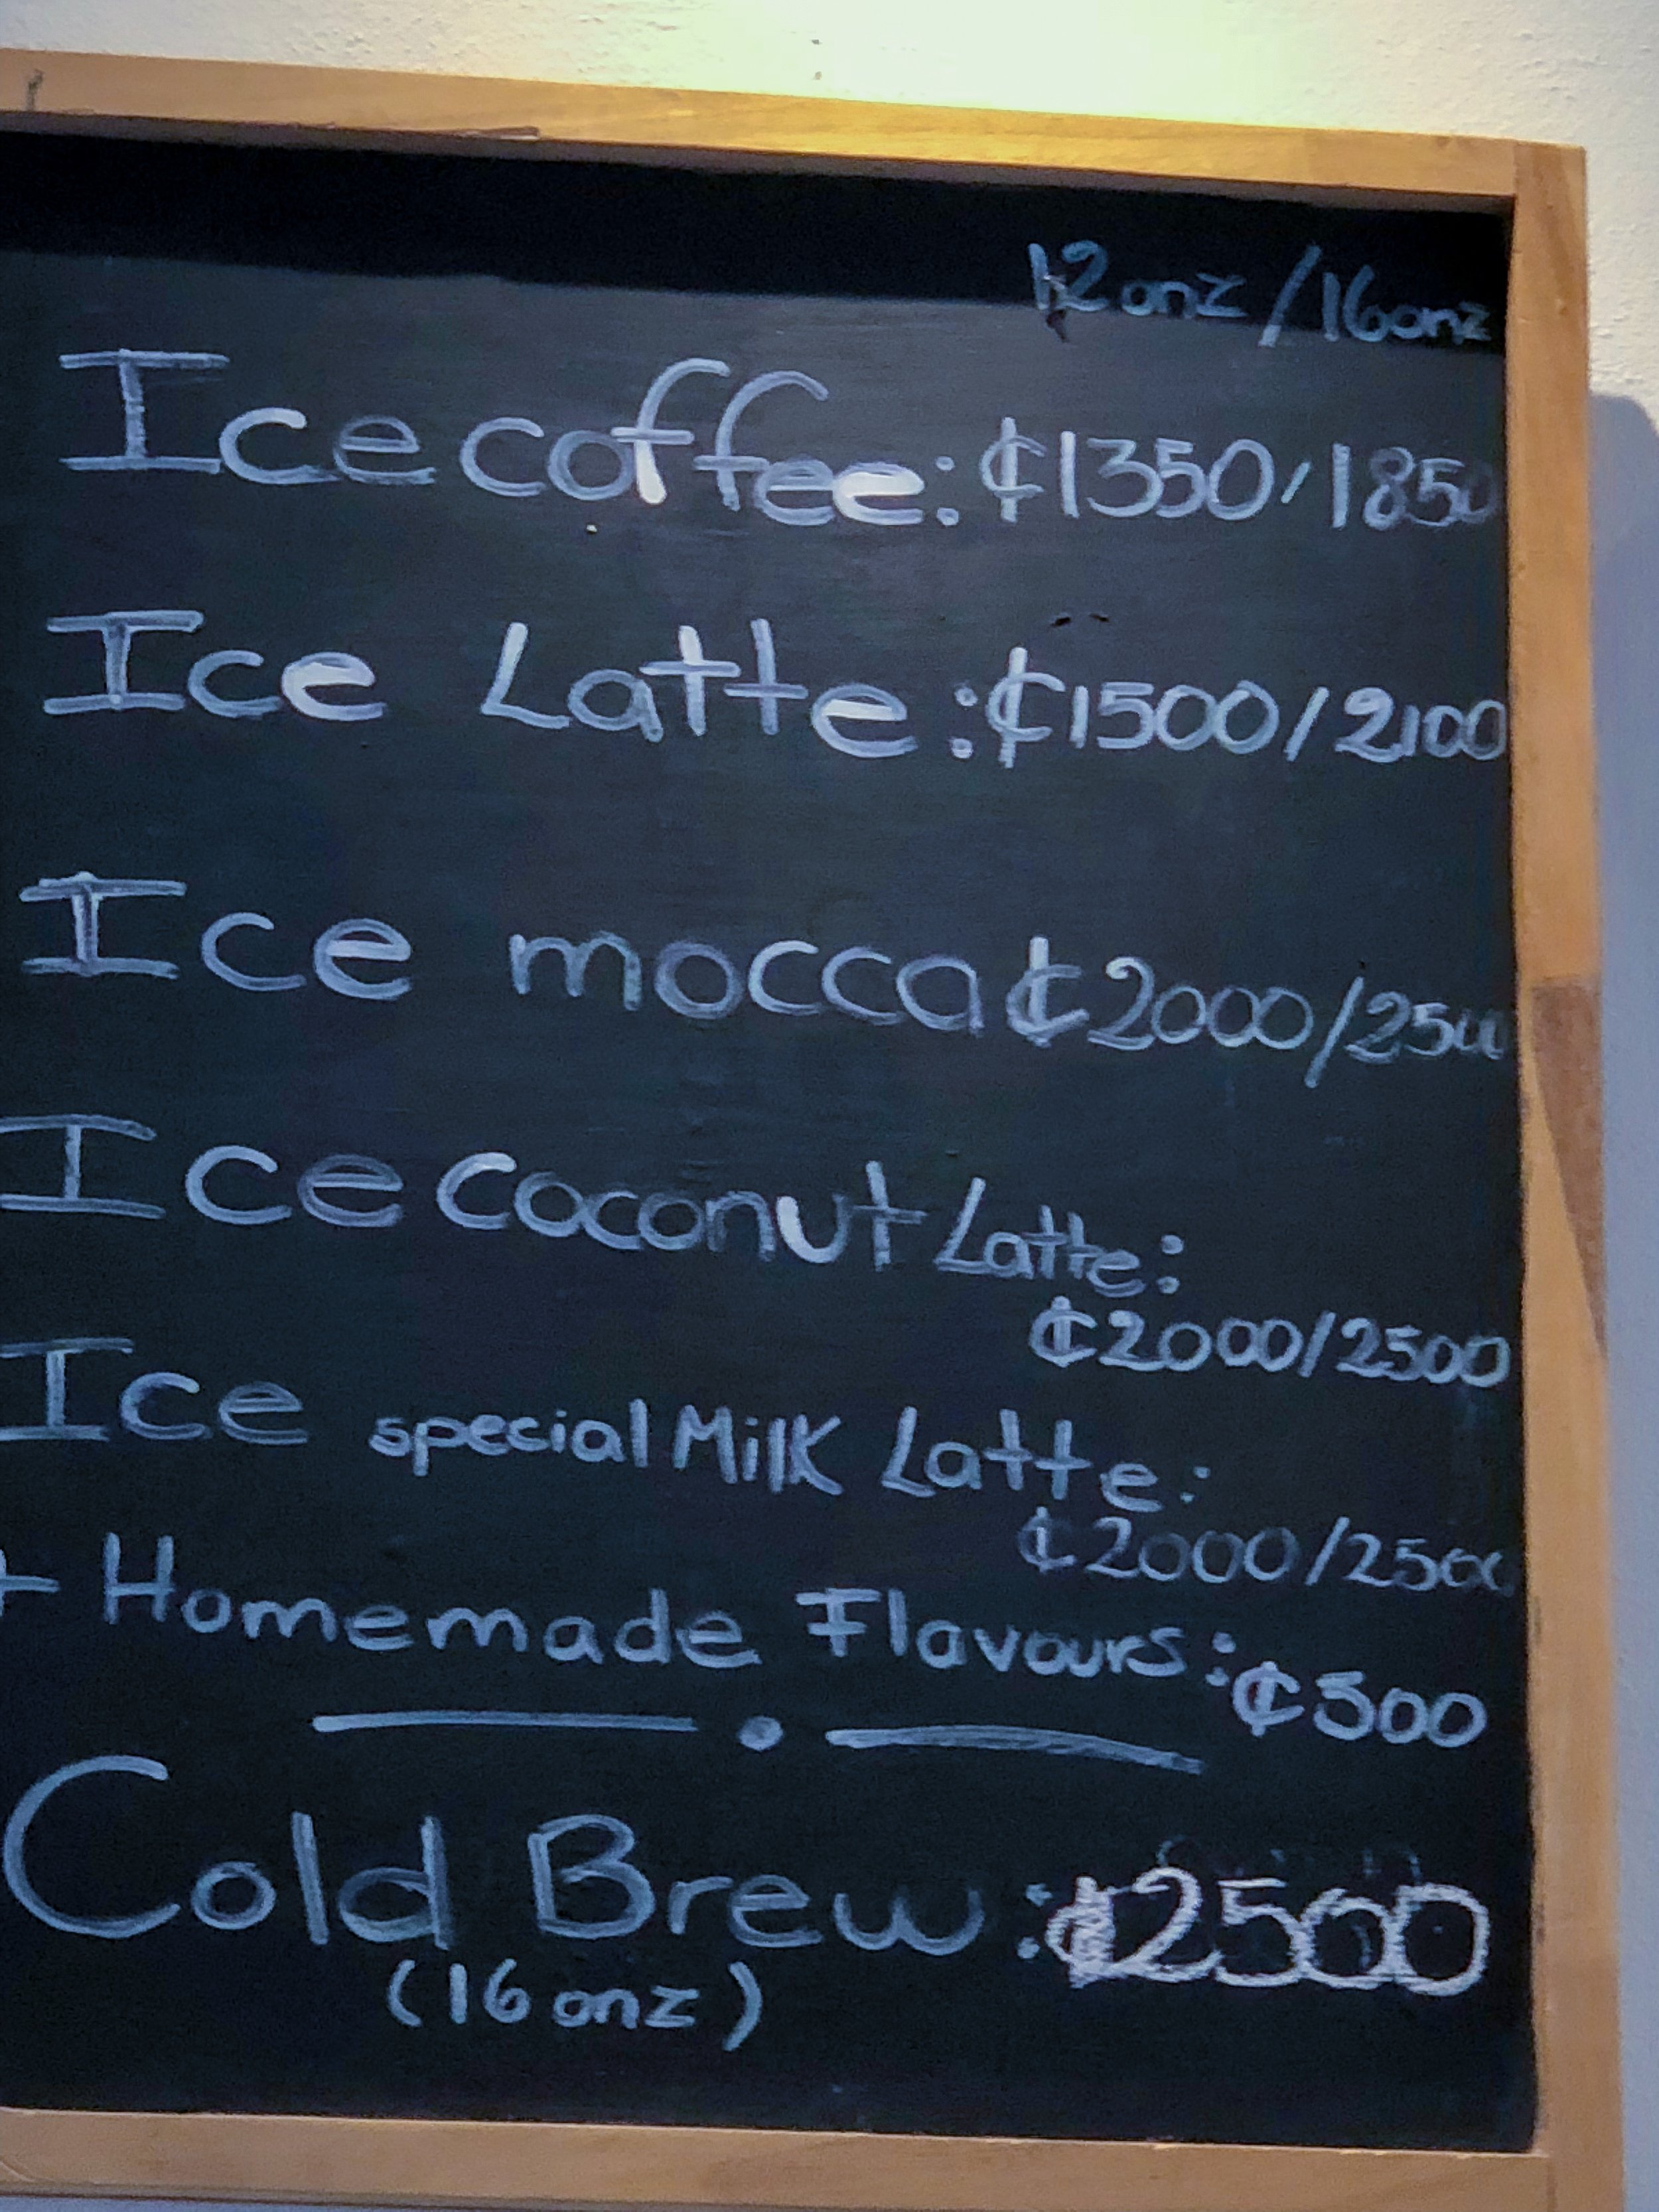 12onz/16onz
Ice coffee: ₵1350/1850
Ice Latte: ₵1500/2100
Ice mocca ₵2000/2500
Ice coconut Latte:
₵2000/2500
Ice special Milk Latte:
₵2000/2500
+ Homemade Flavours: ₵500
Cold Brew: ₵2500
(16 onz)